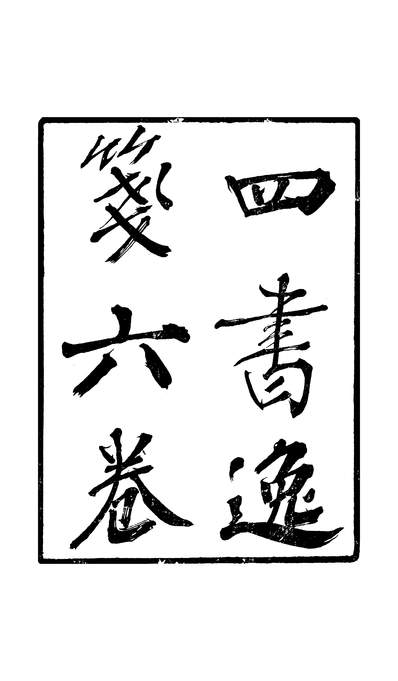 四書逸
箋六卷